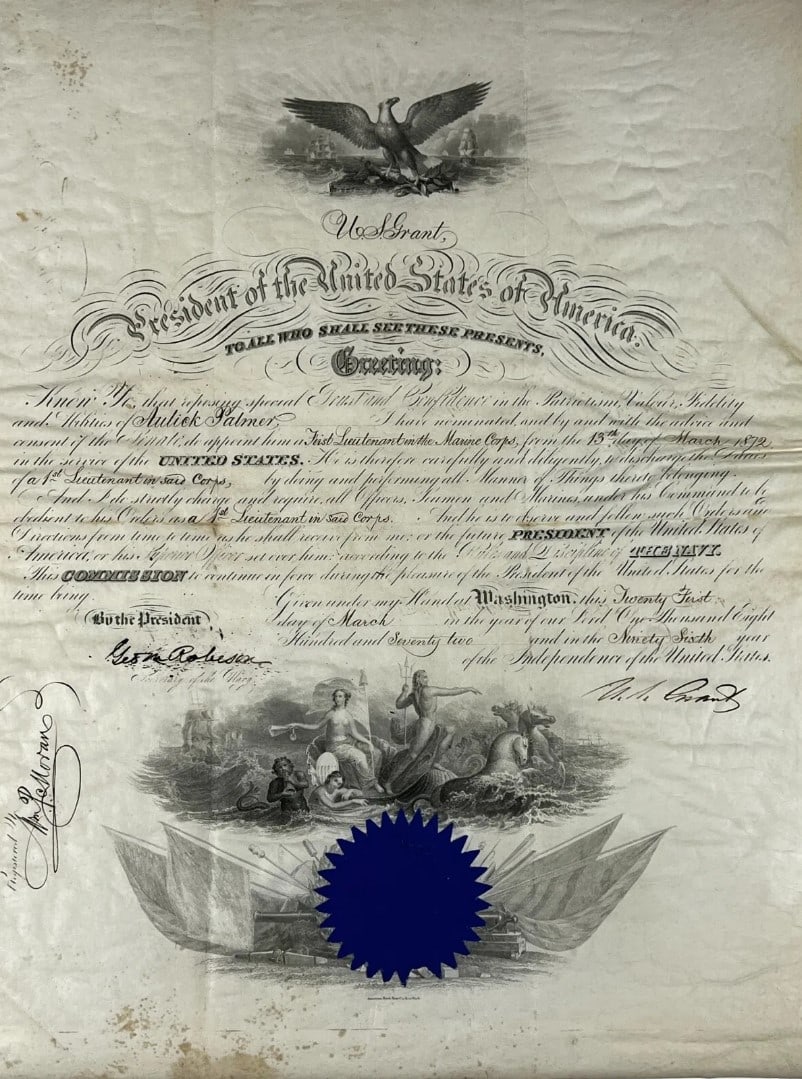 U. S. Grant,
President of the United States of America.
TO ALL WHO SHALL SEE THESE PRESENTS,
Greeting:
Know Ye, that reposing special Trust and Confidence in the Patriotism, Valour, Fidelity
and Abilities of Aulick Palmer, I have nominated, and by and with the advice and
consent of the Senate, do appoint him a First Lieutenant in the Marine Corps, from the 13th day of March, 1872,
in the service of the UNITED STATES. He is therefore carefully and diligently to discharge the Duties
of a 1st Lieutenant in said Corps, by doing and performing all Manner of Things thereto belonging.
And I do strictly charge and require all Officers, Seamen and Marines, under his Command to be
obedient to his Orders as a 1st Lieutenant in said Corps. And he is to observe and follow such Orders and
Directions from time to time as he shall receive from me, or the future PRESIDENT of the United States of
America, or his Superior Officer set over him, according to the Rules and Discipline of THE NAVY.
This COMMISSION to continue in force during the pleasure of the President of the United States for the
time being.
Given under my Hand at Washington, this Twenty First
By the President
day of March in the year of our Lord One Thousand Eight
Hundred and Seventy two and in the Ninety Sixth year
Geo M Robeson
of the Independence of the United States.
Secretary of the Navy.
U. S. Grant
Registered
Wm P Moran
American Bank Note Co. New York